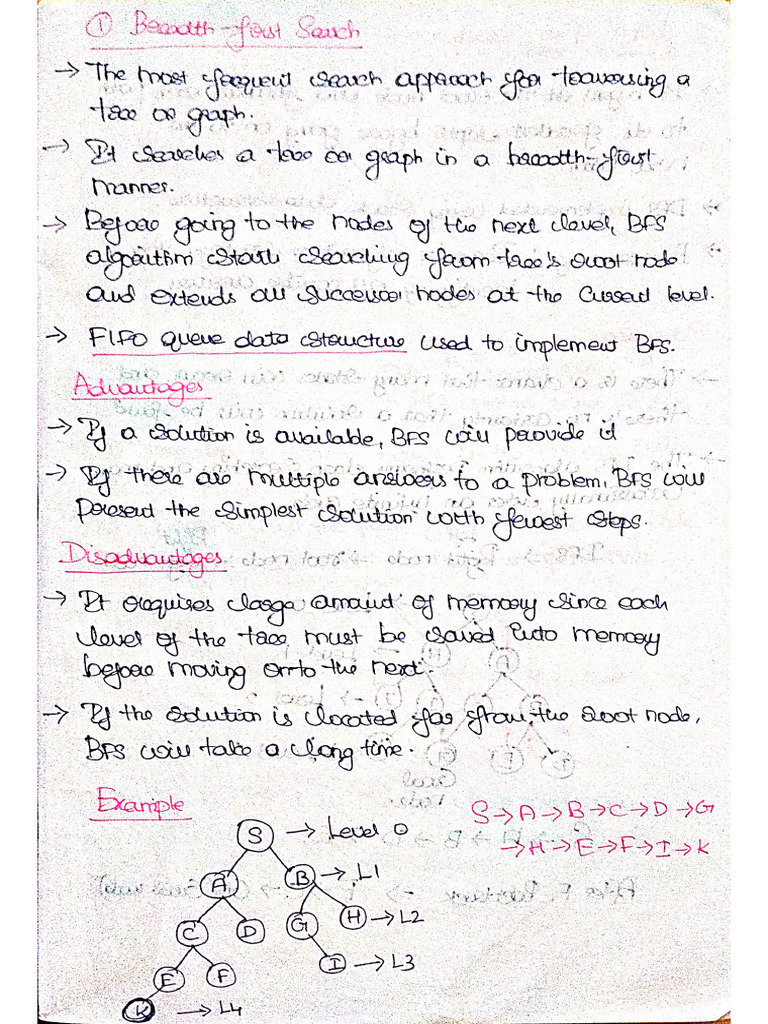 ① Breadth-first Search
→ The most frequent search approach for traversing a
tree or graph.
→ It searches a tree or graph in a breadth-first
manner.
→ Before going to the nodes of the next level, BFS
algorithm start searching from tree's root node
and extends all successor nodes at the current level.
→ FIFO queue data structure used to implement BFS.
Advantages
→ If a solution is available, BFS will provide it
→ If there are multiple answers to a problem, BFS will
present the simplest solution with fewest steps.
Disadvantages
→ It requires large amount of memory since each
level of the tree must be saved into memory
before moving onto the next.
→ If the solution is located far from the root node,
BFS will take a long time.
Example
S→A→B→C→D→G
→H→E→F→I→K
S → Level 0
A B → L1
C D G H → L2
E F I → L3
K → L4